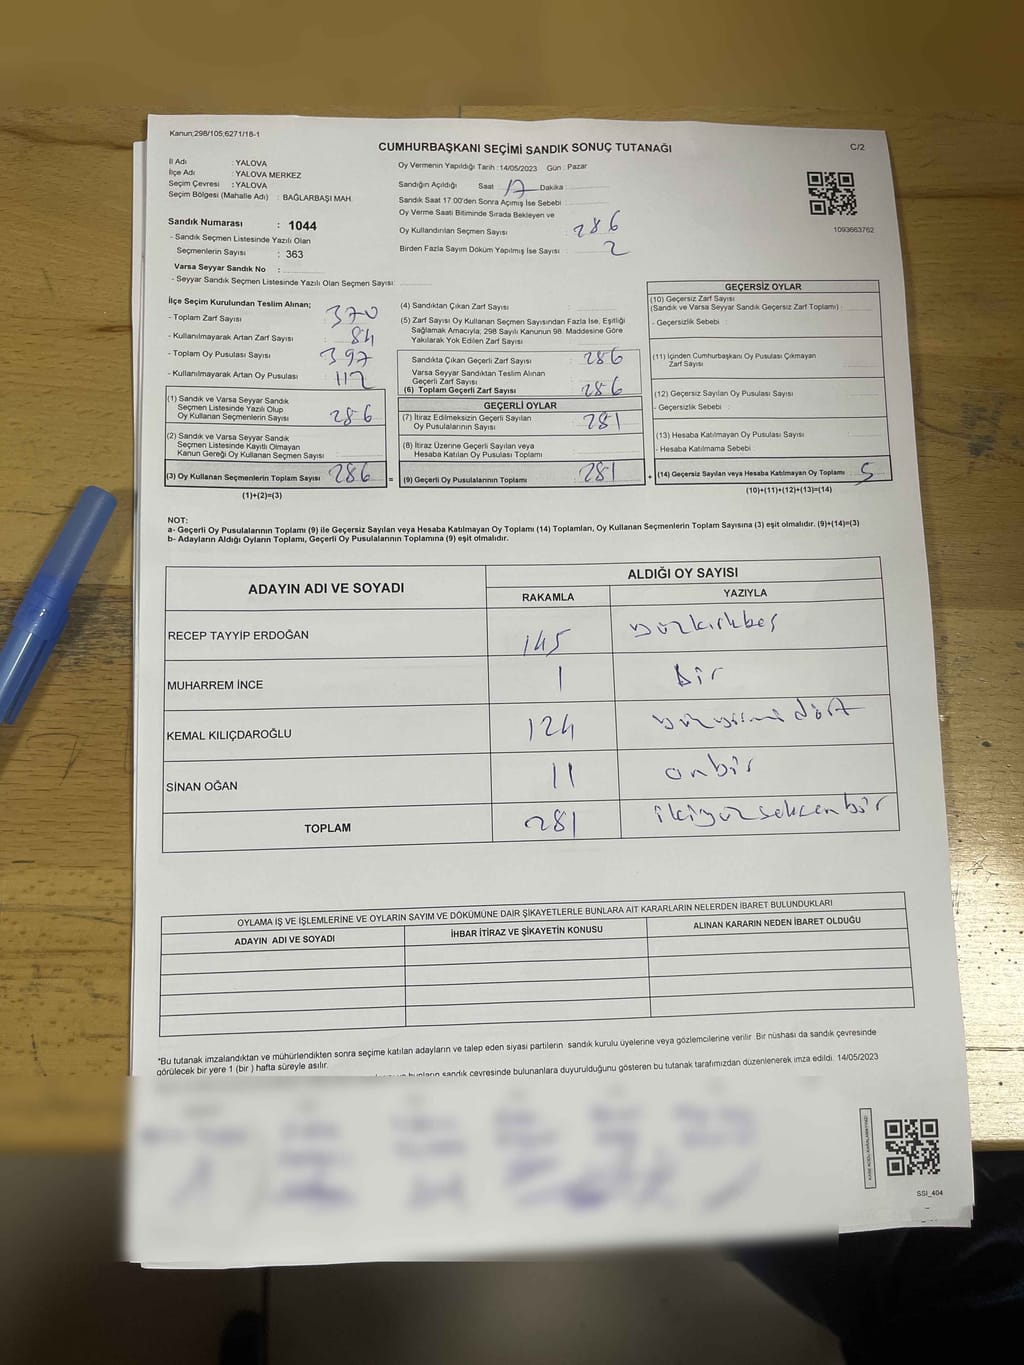 Kanun;298/105;6271/18-1
CUMHURBAŞKANI SEÇİMİ SANDIK SONUÇ TUTANAĞI
C/2
İl Adı : YALOVA
İlçe Adı : YALOVA MERKEZ
Seçim Çevresi : YALOVA
Seçim Bölgesi (Mahalle Adı) : BAĞLARBAŞI MAH.
Oy Vermenin Yapıldığı Tarih :14/05/2023 Gün : Pazar
Sandığın Açıldığı Saat 17 Dakika
Sandık Saat 17.00'den Sonra Açımış İse Sebebi
Oy Verme Saati Bitiminde Sırada Bekleyen ve
Oy Kullandırılan Seçmen Sayısı : 286
Birden Fazla Sayım Döküm Yapılmış İse Sayısı : 2
1093663762
Sandık Numarası : 1044
- Sandık Seçmen Listesinde Yazılı Olan
Seçmenlerin Sayısı : 363
Varsa Seyyar Sandık No :
- Seyyar Sandık Seçmen Listesinde Yazılı Olan Seçmen Sayısı:
İlçe Seçim Kurulundan Teslim Alınan;
- Toplam Zarf Sayısı : 370
- Kullanılmayarak Artan Zarf Sayısı : 84
- Toplam Oy Pusulası Sayısı : 397
- Kullanılmayarak Artan Oy Pusulası : 112
(1) Sandık ve Varsa Seyyar Sandık
Seçmen Listesinde Yazılı Olup
Oy Kullanan Seçmenlerin Sayısı : 286
(2) Sandık ve Varsa Seyyar Sandık
Seçmen Listesinde Kayıtlı Olmayan
Kanun Gereği Oy Kullanan Seçmen Sayısı :
(3) Oy Kullanan Seçmenlerin Toplam Sayısı : 286
(1)+(2)=(3)
(4) Sandıktan Çıkan Zarf Sayısı
(5) Zarf Sayısı Oy Kullanan Seçmen Sayısından Fazla İse, Eşitliği
Sağlamak Amacıyla; 298 Sayılı Kanunun 98. Maddesine Göre
Yakılarak Yok Edilen Zarf Sayısı
Sandıkta Çıkan Geçerli Zarf Sayısı : 286
Varsa Seyyar Sandıktan Teslim Alınan
Geçerli Zarf Sayısı
(6) Toplam Geçerli Zarf Sayısı : 286
GEÇERLİ OYLAR
(7) İtiraz Edilmeksizin Geçerli Sayılan
Oy Pusulalarının Sayısı : 281
(8) İtiraz Üzerine Geçerli Sayılan veya
Hesaba Katılan Oy Pusulası Toplamı
= (9) Geçerli Oy Pusulalarının Toplamı : 281
GEÇERSİZ OYLAR
(10) Geçersiz Zarf Sayısı
(Sandık ve Varsa Seyyar Sandık Geçersiz Zarf Toplamı) :
- Geçersizlik Sebebi :
(11) İçinden Cumhurbaşkanı Oy Pusulası Çıkmayan
Zarf Sayısı
(12) Geçersiz Sayılan Oy Pusulası Sayısı
- Geçersizlik Sebebi :
(13) Hesaba Katılmayan Oy Pusulası Sayısı
- Hesaba Katılmama Sebebi :
+ (14) Geçersiz Sayılan veya Hesaba Katılmayan Oy Toplamı : 5
(10)+(11)+(12)+(13)=(14)
NOT:
a- Geçerli Oy Pusulalarının Toplamı (9) ile Geçersiz Sayılan veya Hesaba Katılmayan Oy Toplamı (14) Toplamları, Oy Kullanan Seçmenlerin Toplam Sayısına (3) eşit olmalıdır. (9)+(14)=(3)
b- Adayların Aldığı Oyların Toplamı, Geçerli Oy Pusulalarının Toplamına (9) eşit olmalıdır.
ADAYIN ADI VE SOYADI
ALDIĞI OY SAYISI
RAKAMLA YAZIYLA
RECEP TAYYİP ERDOĞAN 145 yüzkırkbeş
MUHARREM İNCE 1 bir
KEMAL KILIÇDAROĞLU 124 yüzyirmi dört
SİNAN OĞAN 11 onbir
TOPLAM 281 ikiyüzseksenbir
OYLAMA İŞ VE İŞLEMLERİNE VE OYLARIN SAYIM VE DÖKÜMÜNE DAİR ŞİKAYETLERLE BUNLARA AİT KARARLARIN NELERDEN İBARET BULUNDUKLARI
ADAYIN ADI VE SOYADI İHBAR İTİRAZ VE ŞİKAYETİN KONUSU ALINAN KARARIN NEDEN İBARET OLDUĞU
*Bu tutanak imzalandıktan ve mühürlendikten sonra seçime katılan adayların ve talep eden siyasi partilerin sandık kurulu üyelerine veya gözlemcilerine verilir. Bir nüshası da sandık çevresinde
görülecek bir yere 1 (bir ) hafta süreyle asılır.
sandık çevresinde bulunanlara duyurulduğunu gösteren bu tutanak tarafımızdan düzenlenerek imza edildi. 14/05/2023
SSI_404